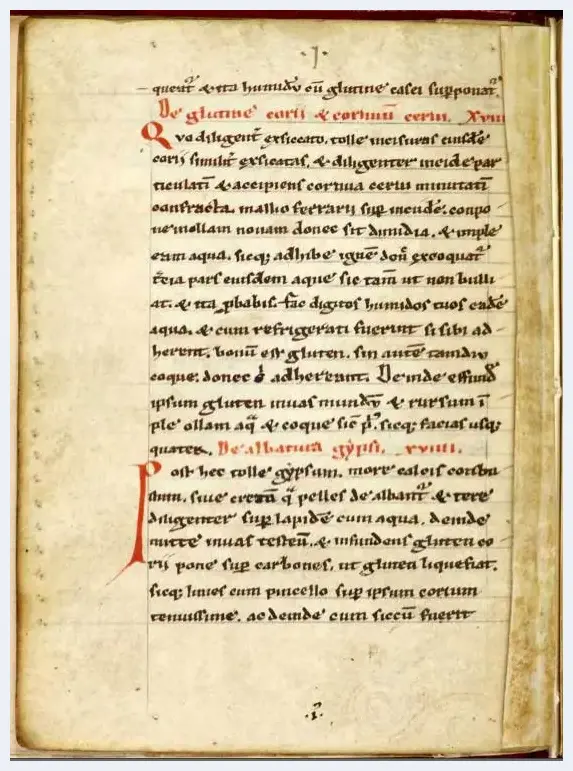 ·I·
querit᷑ & ita humidū cū glutine casei supponat᷑.
De glutine corii & cornuum cerui. XVIII
Quo diligent᷑ exsiccato. tolle incisuras eiusdē
corii similit᷑ exsicatas. & diligenter incide par
ticulati & accipiens cornua cerui minutatī
confracta. malleo ferrarii sup incudē. conpo
ne in ollam nouam donec sit dimidia. & imple
eam aqua. sicq; adhibe ignē don̄ excoquat᷑
tᷓcia pars eiusdem aque sic tam̄ ut non bulli
at. & ita ꝓbabis. fac digitos humidos tuos eadē
aqua. & cum refrigerati fuerint si sibi ad
herent. bonū est gluten. sin autē tamdiu
coque. donec adhereant. Deinde effund
ipsum gluten in uas mundū & rursum ī
ple ollam aq̄ & coque sic p̄. sicq; facias usq;
quater. De albatura gypsi. XVIIII.
Post hec tolle gypsum. more calcis conbu
stum. siue cretā q̄ pelles dealbant᷑ & tere
diligenter sup lapidē cum aqua. deinde
mitte in uas testeū. & infundens gluten co
rii pone sup carbones. ut gluten liquefiat.
sicq; linies cum pincello sup ipsum corium
tenuissime. ac deinde cum siccū fuerit
·I·